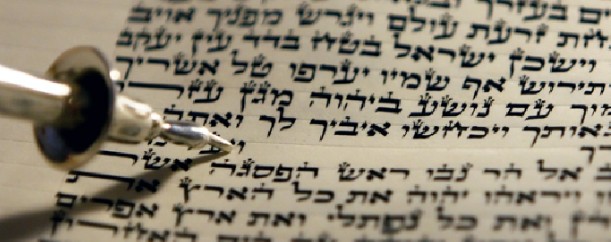 בעזרך
זרעת עולם ויגרש מפניך אויב
וישכן ישראל בטח בדד עין יעקב
ותירוש אף שמיו יערפו טל אשריך
מוך עם נושע ביהוה מגן עזרך
אותך ויכחשו איביך לך ואתה
אל הר נבו ראש הפסגה אשר
ויראהו יהוה את כל הארץ את
ואת כל נפתלי ואת ארץ אפרים